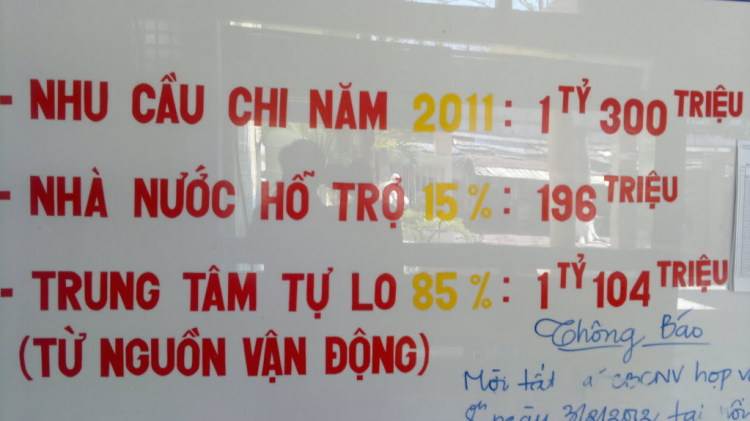 - NHU CẦU CHI NĂM 2011: 1 TỶ 300 TRIỆU
- NHÀ NƯỚC HỖ TRỢ 15%: 196 TRIỆU
- TRUNG TÂM TỰ LO 85%: 1 TỶ 104 TRIỆU
(TỪ NGUỒN VẬN ĐỘNG)
Thông Báo
Mời tất CBCNV họp
ngày 3/8/2012 tại